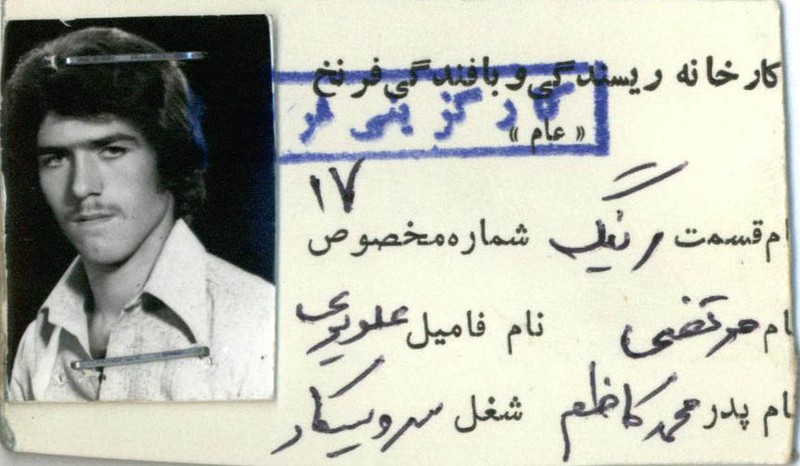 کارخانه ریسندگی و بافندگی فرنخ
کارگر فنی
« عام »
۱۷
ام قسمت رینگ شماره مخصوص
ام مرتضی نام فامیل علویری
ام پدر محمد کاظم شغل سرویسکار